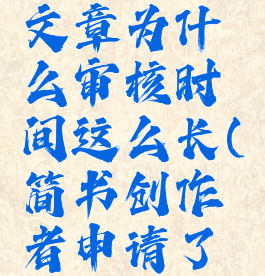 文章为什
么审核时
间这么长(
简书创作
者申请了